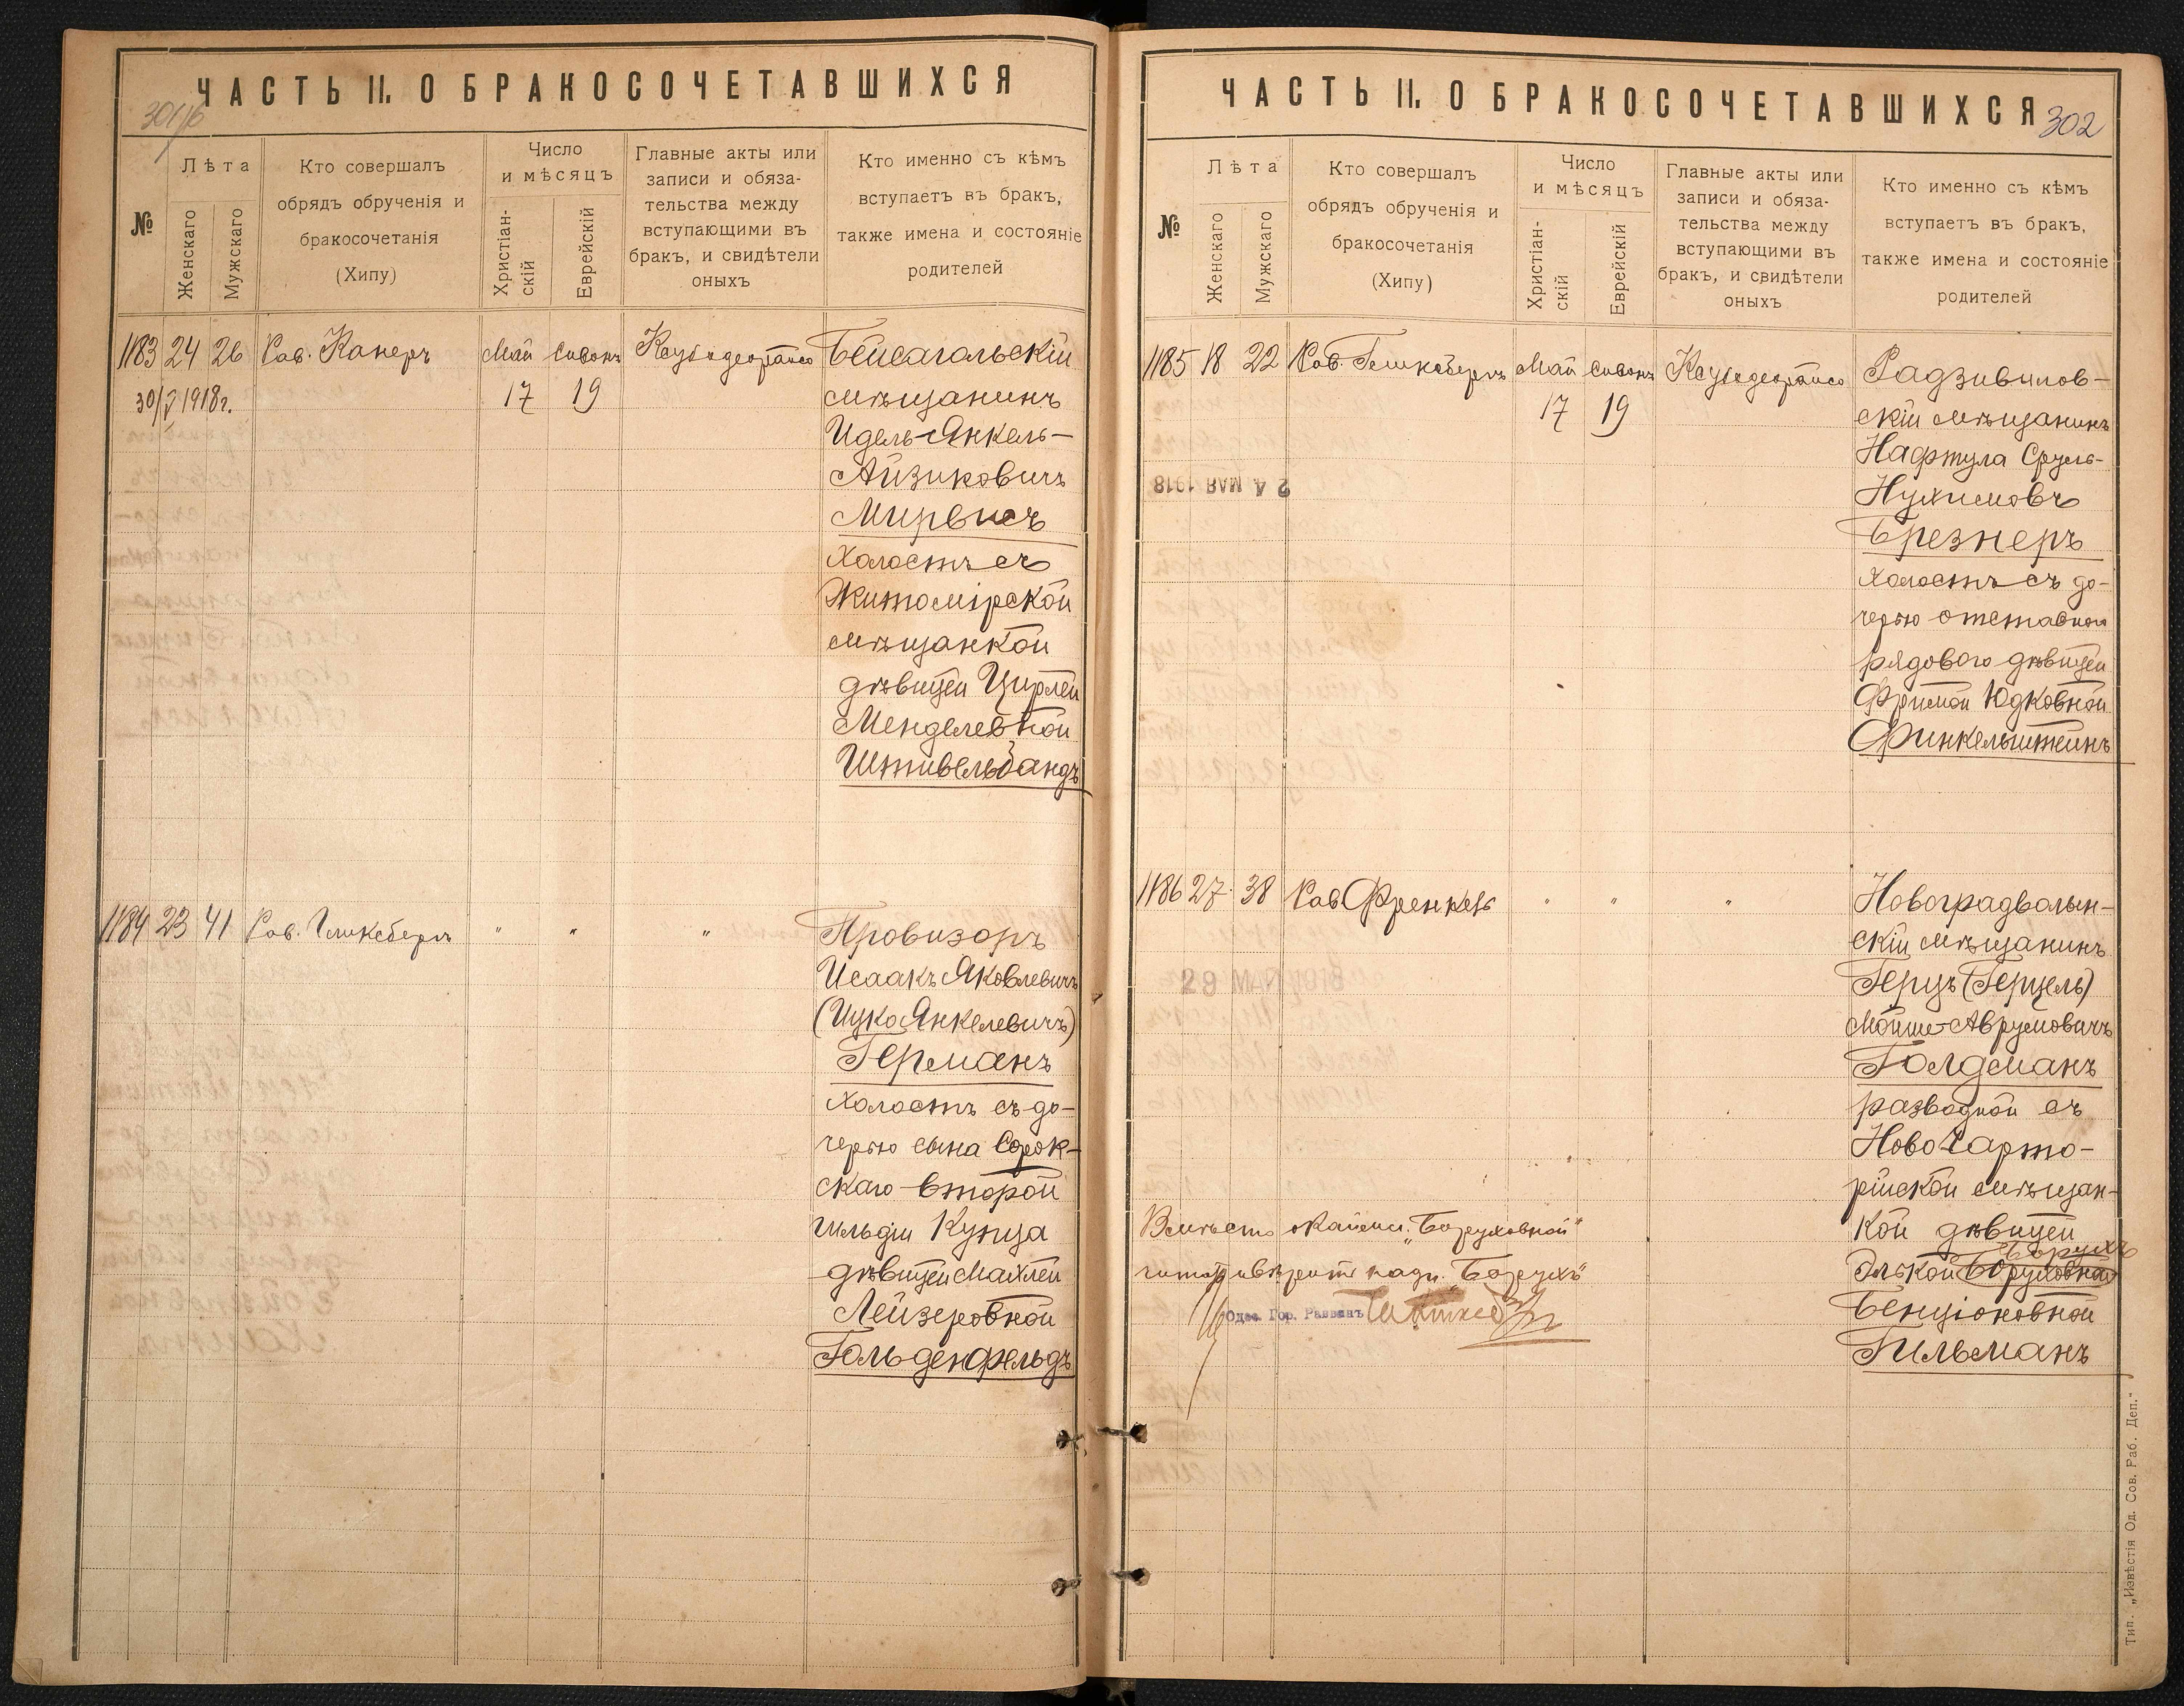 ЧАСТЬ II. О БРАКОСОЧЕТАВШИХСЯ
№
Лѣта
Женскаго
Мужскаго
Кто совершалъ
обрядъ обрученія и
бракосочетанія
(Хипу)
Число
и мѣсяцъ
Христіан-
скій
Еврейскій
Главные акты или
записи и обяза-
тельства между
вступающими въ
бракъ, и свидѣтели
оныхъ
Кто именно съ кѣмъ
вступаетъ въ бракъ,
также имена и состояніе
родителей
1183 24 26 Рав. Канеръ Май Сивонъ
30/V 1918г. 17 19
Бейсагольскій
мѣщанинъ
Идель-Янкель-
Айзиковичъ
Мирвисъ
холостъ съ
Житомірской
мѣщанкой
дѣвицей Цирлей
Менделевной
Штивельбандъ
1184 23 41 Рав. Гликсбергъ " " "
Провизоръ
Исаакъ Яковлевичъ
(Ицко Янкелевичъ)
Германъ
холостъ съ до-
черью сына Сорок-
скаго второй
гильдіи купца
дѣвицей Махлей
Лейзеровной
Гольденфельдъ
ЧАСТЬ II. О БРАКОСОЧЕТАВШИХСЯ
302
№
Лѣта
Женскаго
Мужскаго
Кто совершалъ
обрядъ обрученія и
бракосочетанія
(Хипу)
Число
и мѣсяцъ
Христіан-
скій
Еврейскій
Главные акты или
записи и обяза-
тельства между
вступающими въ
бракъ, и свидѣтели
оныхъ
Кто именно съ кѣмъ
вступаетъ въ бракъ,
также имена и состояніе
родителей
1185 18 22 Рав. Гликсбергъ Май Сивонъ
17 19
24 МАЯ 1918
Радзивилов-
скій мѣщанинъ
Нафтула Сруль-
Нухимовъ
Брезнеръ
холостъ съ до-
черью отставного
рядового дѣвицей
Фримой Юдковной
Финкельштейнъ
1186 27 38 Рав Френкель " " "
Новоградволын-
скій мѣщанинъ
Герцъ (Герцель)
Мойше-Аврумовичъ
Голдманъ
разводной съ
Ново Чарто-
рійской мѣщан-
кой дѣвицей
Борухъ
Элькой Боруховной
Бенціоновной
Гильманъ
Вмѣсто „Боруховной"
„Борухъ"
Одес. Гор. Раввинъ
Тип. „Извѣстія Од. Сов. Раб. Деп."